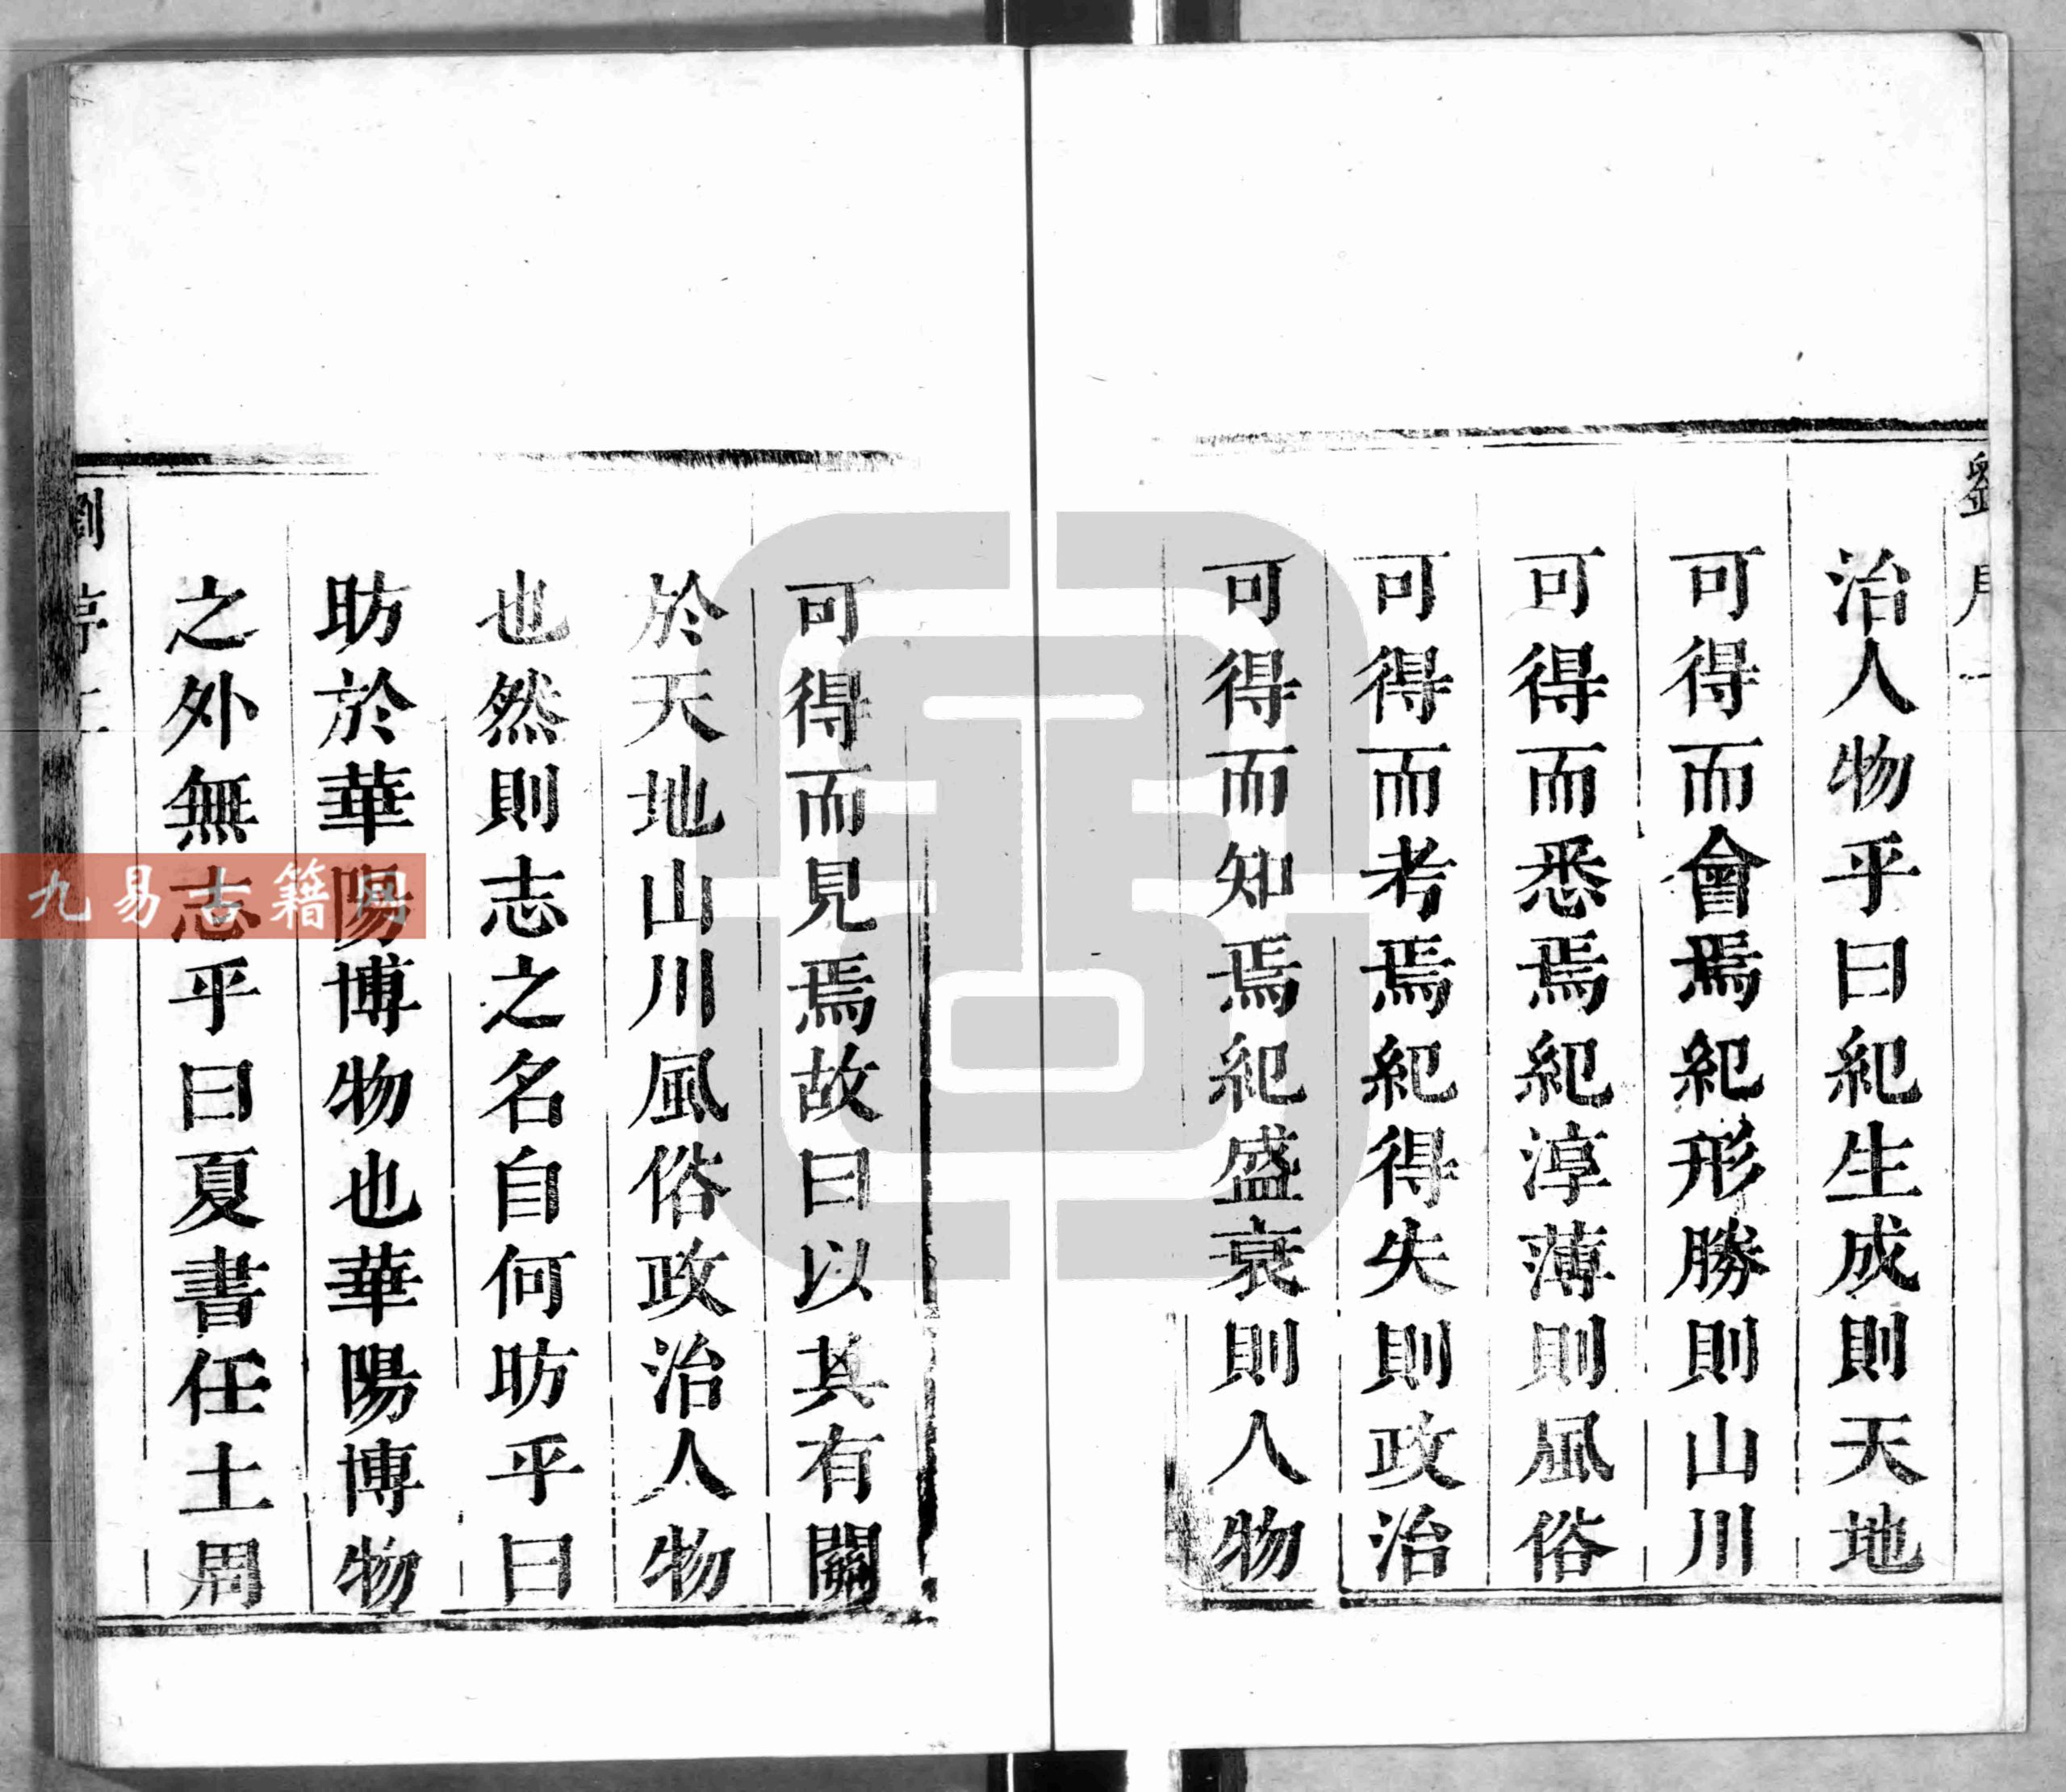 治人物乎曰紀生成則天地
可得而會焉紀形勝則山川
可得而悉焉紀淳薄則風俗
可得而考焉紀得失則政治
可得而知焉紀盛衰則人物
可得而見焉故曰以其有關
於天地山川風俗政治人物
也然則志之名自何昉乎曰
昉於華陽博物也華陽博物
之外無志乎曰夏書任土周
九易古籍网